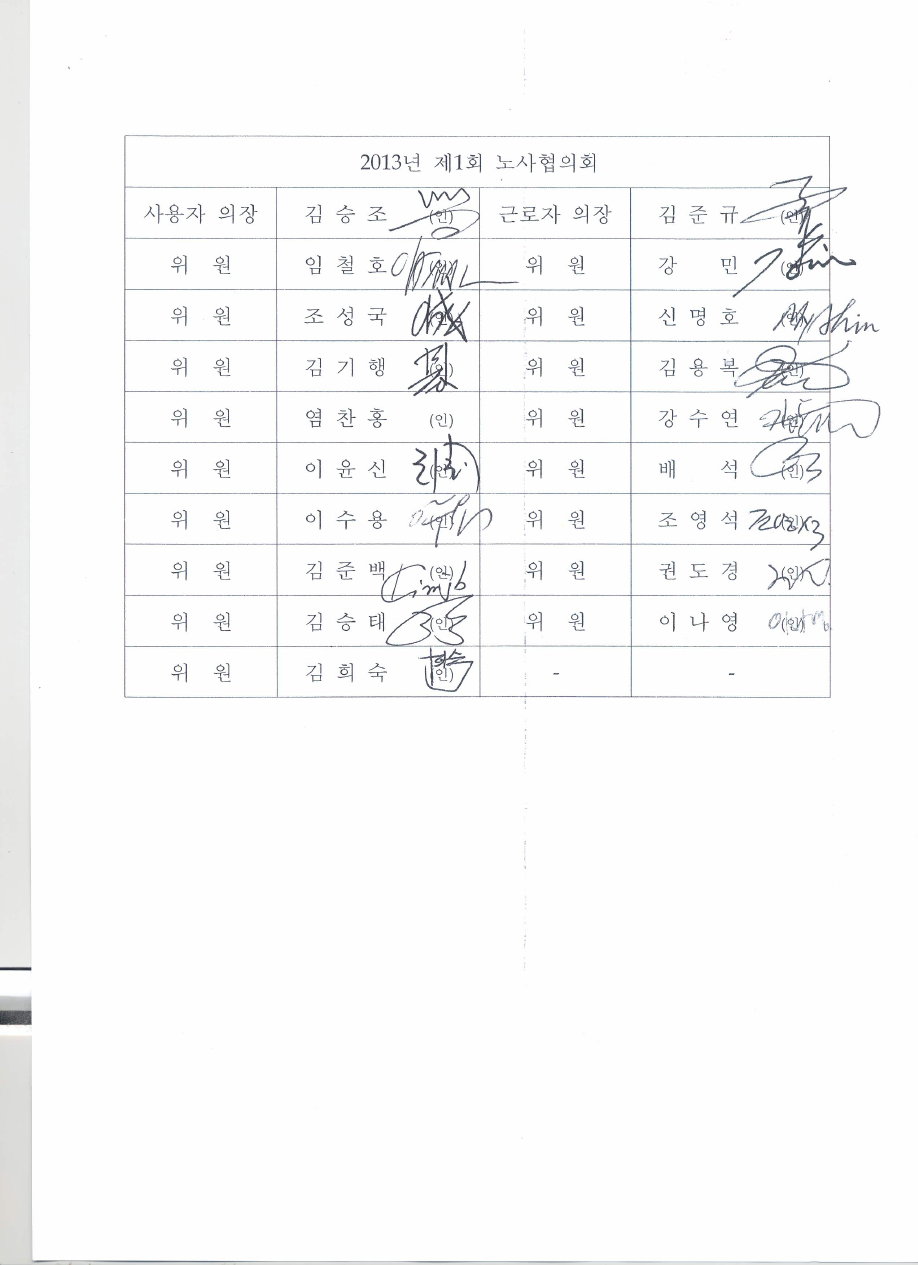 2013년 제1회 노사협의회
사용자 의장 김 승 조 (인) 근로자 의장 김 준 규 (인)
위 원 임 철 호 (인) 위 원 강 민 (인)
위 원 조 성 국 (인) 위 원 신 명 호 (인)
위 원 김 기 행 (인) 위 원 김 용 복 (인)
위 원 염 찬 홍 (인) 위 원 강 수 연 (인)
위 원 이 윤 신 (인) 위 원 배 석 (인)
위 원 이 수 용 (인) 위 원 조 영 석 (인)
위 원 김 준 백 (인) 위 원 권 도 경 (인)
위 원 김 승 태 (인) 위 원 이 나 영 (인)
위 원 김 희 숙 (인) - -